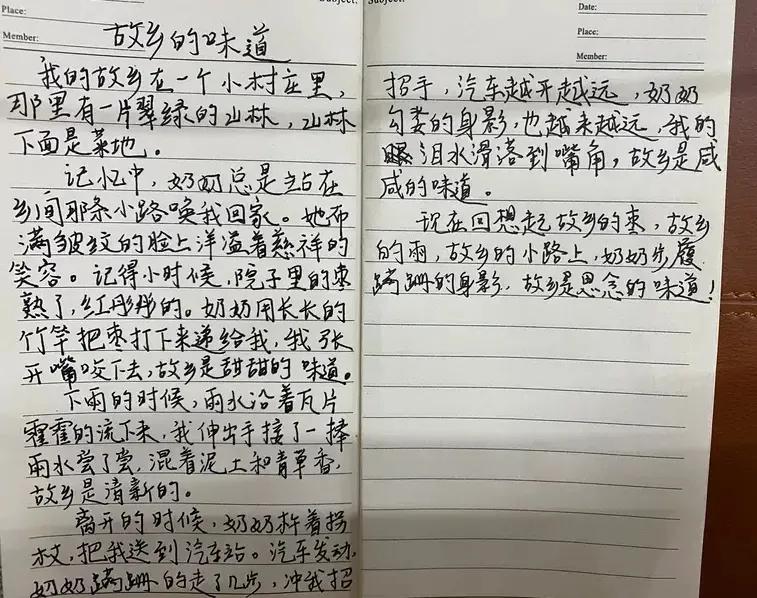 Place:
Member:
故乡的味道
我的故乡在一个小村庄里，
那里有一片翠绿的山林，山林
下面是菜地。
记忆中，奶奶总是站在
乡间那条小路唤我回家。她布
满皱纹的脸上洋溢着慈祥的
笑容。记得小时候，院子里的枣
熟了，红彤彤的。奶奶用长长的
竹竿把枣打下来递给我，我张
开嘴咬下去，故乡是甜甜的味道。
下雨的时候，雨水沿着瓦片
霍霍的流下来，我伸出手接了一捧
雨水尝了尝，混着泥土和青草香，
故乡是清新的。
离开的时候，奶奶杵着拐
杖，把我送到汽车站。汽车发动，
奶奶蹒跚的走了几步，冲我招
Subject:
Date:
Place:
Member:
招手，汽车越开越远，奶奶
勾娄的身影，也越来越远，我的
眼泪水滑落到嘴角，故乡是咸
咸的味道。
现在回想起故乡的枣，故乡
的雨，故乡的小路上，奶奶步履
蹒跚的身影，故乡是思念的味道！